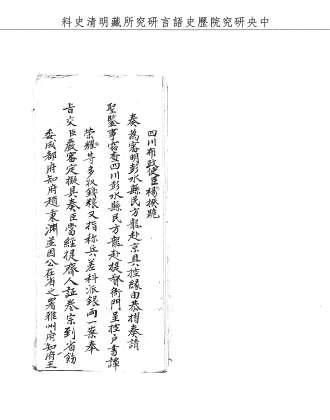 中央研究院歷史語言研究所藏明清史料
四川布政使臣楊揆跪
奏為審明彭水縣民方龍赴京具控緣由恭摺奏請
聖鑒事竊查四川彭水縣民方龍赴提督衙門呈控戶書譚
榮耀等多收錢糧又指稱兵差科派銀兩一案奉
旨交臣嚴審定擬具奏臣當經提齊人証卷宗到省飭
委成都府知府趙秉淵並因公在省之署雅州府知府王